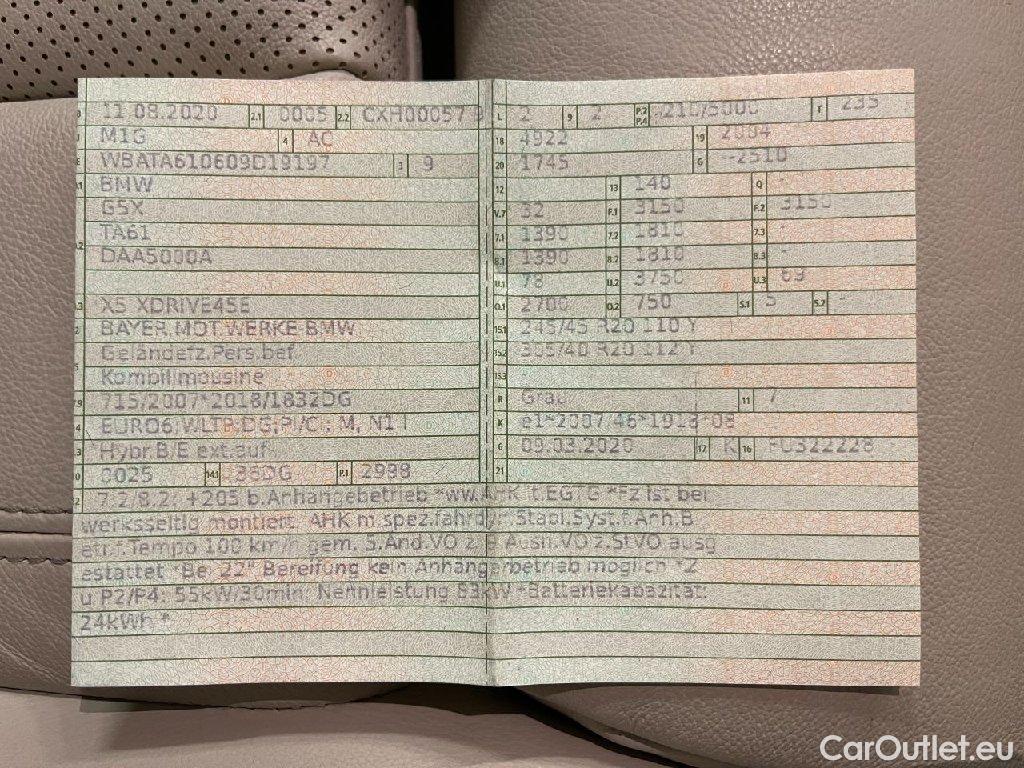 11.08.2020 2.1 0005 2.2 CXH00057 L 2 9 2 P.2 P.4 210/5000 T 235
M1G 4 AC 18 4922 19 2004
WBATA610609D19197 3 9 20 1745 G -2510
BMW 12 13 140 Q -
G5X V.7 32 F.1 3150 F.2 3150
TA61 7.1 1390 7.2 1810 7.3 -
DAA5000A 8.1 1390 8.2 1810 8.3 -
U.1 78 U.2 3750 U.3 69
X5 XDRIVE45E O.1 2700 O.2 750 S.1 5 S.2 -
BAYER.MOT.WERKE-BMW 15.1 245/45 R20 110 Y
Geländefz.Pers.bef. 15.2 305/40 R20 112 Y
Kombilimousine 15.3 -
715/2007*2018/1832DG R Grau 11 7
EURO6;WLTP;DG;PI/CI; M, N1 I K e1*2007/46*1918*08
Hybr.B/E ext.aufl. 6 09.03.2020 17 K 16
0025 14.1 36DG P.1 2998 21
7.2/8.2: +205 b.Anhängebetrieb *ww.AHK lt.EGTG *Fz ist bei
werksseitig montiert. AHK m.spez.fahrdyn.Stabi.Syst.f.Anh.B
etr.f.Tempo 100 km/h gem. 9.Änd.VO z. 9.Ausn.VO z.StVO ausg
estattet *Bei 22" Bereifung kein Anhängerbetrieb möglich *Z
u P2/P4: 55kW/30min; Nennleistung 83kW *Batteriekapazität:
24kWh *
CarOutlet.eu